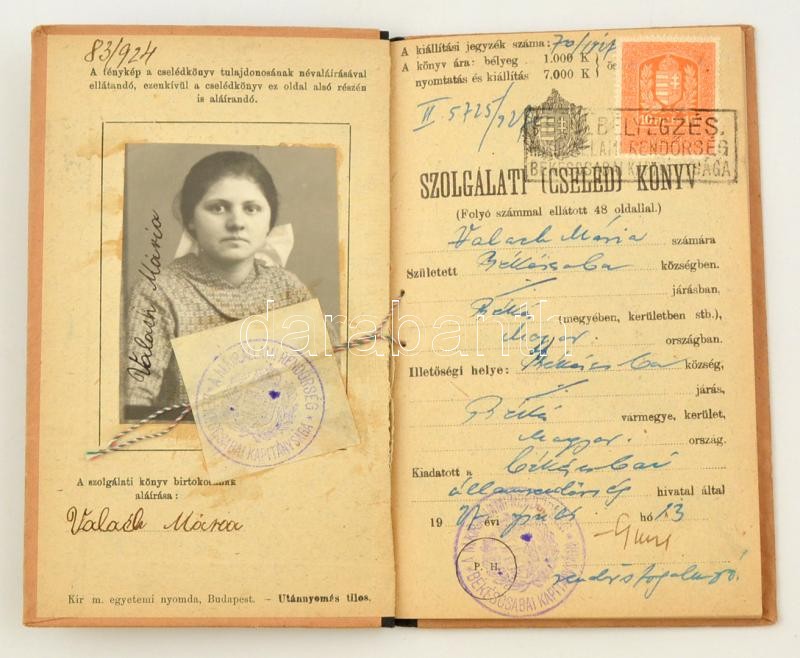 83/924
A fénykép a cselédkönyv tulajdonosának névaláírásával
ellátandó, ezenkívül a cselédkönyv ez oldal alsó részén
is aláírandó.
Valach Mária
A M. KIR. ÁLLAMI RENDŐRSÉG
BÉKÉSCSABAI KAPITÁNYSÁGA
A szolgálati könyv birtokosának
aláírása:
Valach Mária
Kir m. egyetemi nyomda, Budapest. — Utánnyomás tilos.
A kiállítási jegyzék száma: 70/1927
A könyv ára: bélyeg 1.000 K
nyomtatás és kiállítás 7.000 K
II. 5725/927
BÉLYEGZÉS.
ÁLLAMI RENDŐRSÉG
BÉKÉSCSABAI KAPITÁNYSÁGA
SZOLGÁLATI (CSELÉD) KÖNYV
(Folyó számmal ellátott 48 oldallal.)
Valach Mária számára
Született Békéscsaba községben.
járásban,
Békés (megyében, kerületben stb.),
Magyar országban.
Illetőségi helye: Békéscsaba község,
járás,
Békés vármegye, kerület,
Magyar ország.
Kiadatott a békéscsabai
államrendőrség hivatal által
1927 évi április hó 13
P. H.
BÉKÉSCSABAI KAPITÁNYSÁGA
rendőrfogalmazó
darabanth